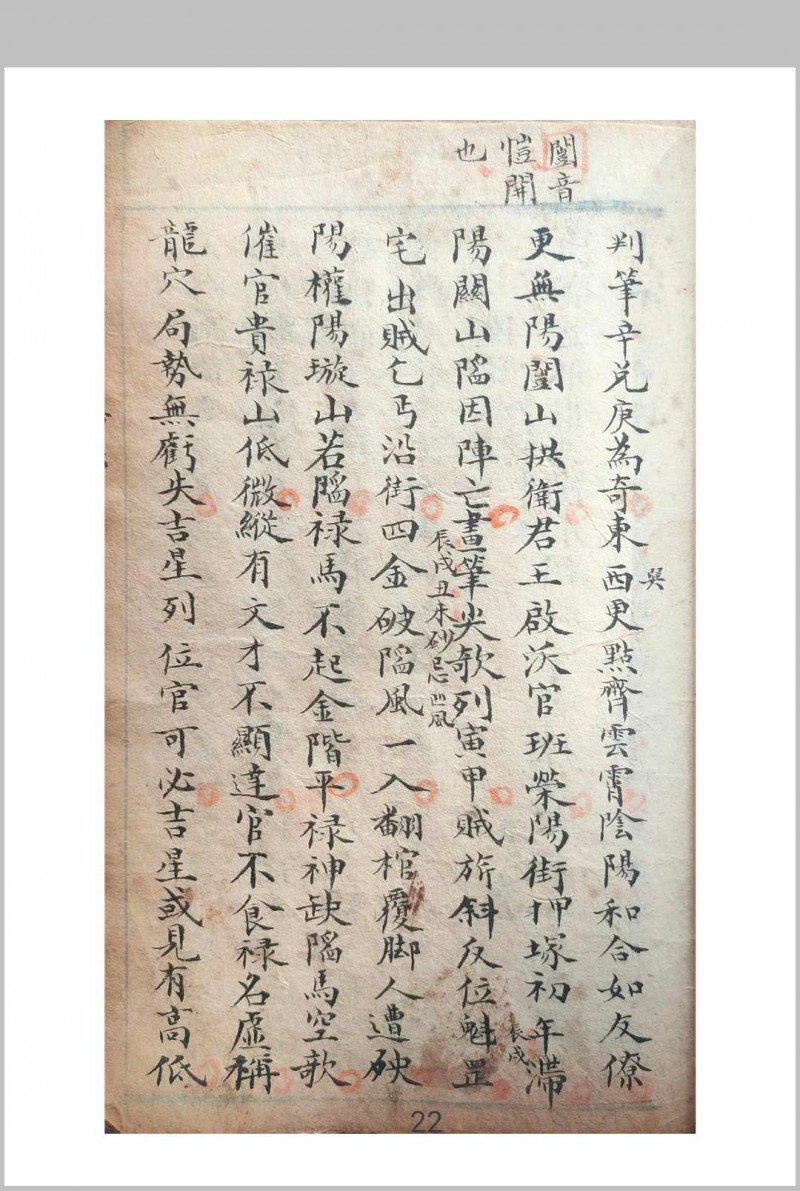 闓音
愷開
也
判筆辛兌庚為奇東西更㸃齊雲霄陰陽和合如友僚
巽
更無陽闓山拱衛君王啟沃官班榮陽街押塚初年滯
辰戌
陽關山䧟因陣亡畫筆尖欹列寅甲賊旂斜反位魁罡
辰戌丑未砂忌凹風
宅出賊乞丐沿街四金破䧟風一入翻棺覆脚人遭殃
陽權陽璇山若䧟禄馬不起金階平禄神缺䧟馬空歌
催官貴禄山低微縱有文才不顯達官不食禄名虛稱
龍穴局勢無虧失吉星列位官可必吉星或見有高低
22